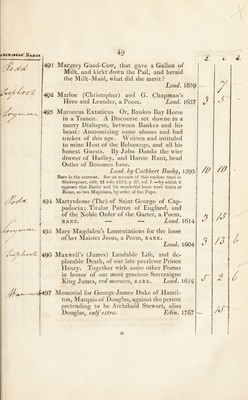 49
PURCHASERS' NAMES
£ s. d.
Rodd
491 Margery Good-Cow, that gave a Gallon of
Milk, and kickt down the Pail, and beraid
the Milk-Maid, what did she merit?
Lond. 1659 — 7
492 Marloe (Christopher) and G. Chapman's
Hero and Leander, a Poem. Lond. 1637 3 5
493 Maroccus Extaticus Or, Bankes Bay Horse
in a Trance. A Discourse set downe in a
merry Dialogue, between Bankes and his
beast: Anatomising some abuses and bad
trickes of this age. Written and intituled
to mine Host of the Belsauage, and all his
honest Guests. By John Dando the wier
drawer of Hadley, and Harrie Runt, head
Ostler of Bosomes Inne.
Lond. by Cuthbert Busby, 1595 10 10
Rare in the extreme. See an account of this curious tract in
Rome, as two Magicians, by order of the Pope.
Rodd
494 Martyrdome (The) of Saint George of Cap-
padocia: Titular Patron of England, and
of the Noble Order of the Garter, a Poem,
RARE. — — Lond. 1614 3 15
495 Mary Magdalen's Lamentations for the losse
of her Maister Jesus, a Poem, RARE.
Lond. 1604 3 13 6
496 Maxwell's (James) Laudable Life, and de-
plorable Death, of our late peerlesse Prince
Henry. Together with some other Poems
in honor of our most gracious Soveraigne
King James, red morocco, RARE. Lond. 1612 5 2 6
497 Memorial for George James Duke of Hamil-
ton, Marquis of Douglas, against the person
pretending to be Archibald Stewart, alias
Douglas, calf extra. Edin. 1767 — 15
H